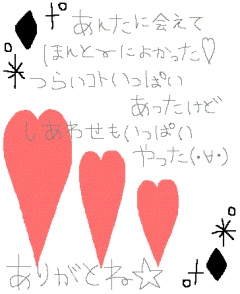 あんたに会えて
ほんとーによかった♡
つらいコトいっぱい
あったけど
しあわせもいっぱい
やった(・∀・)
ありがとね☆